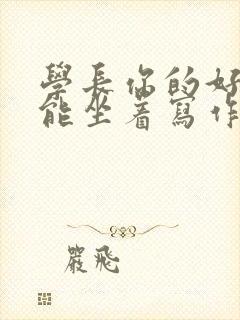 學長你的好
能坐着寫作
嚴飛